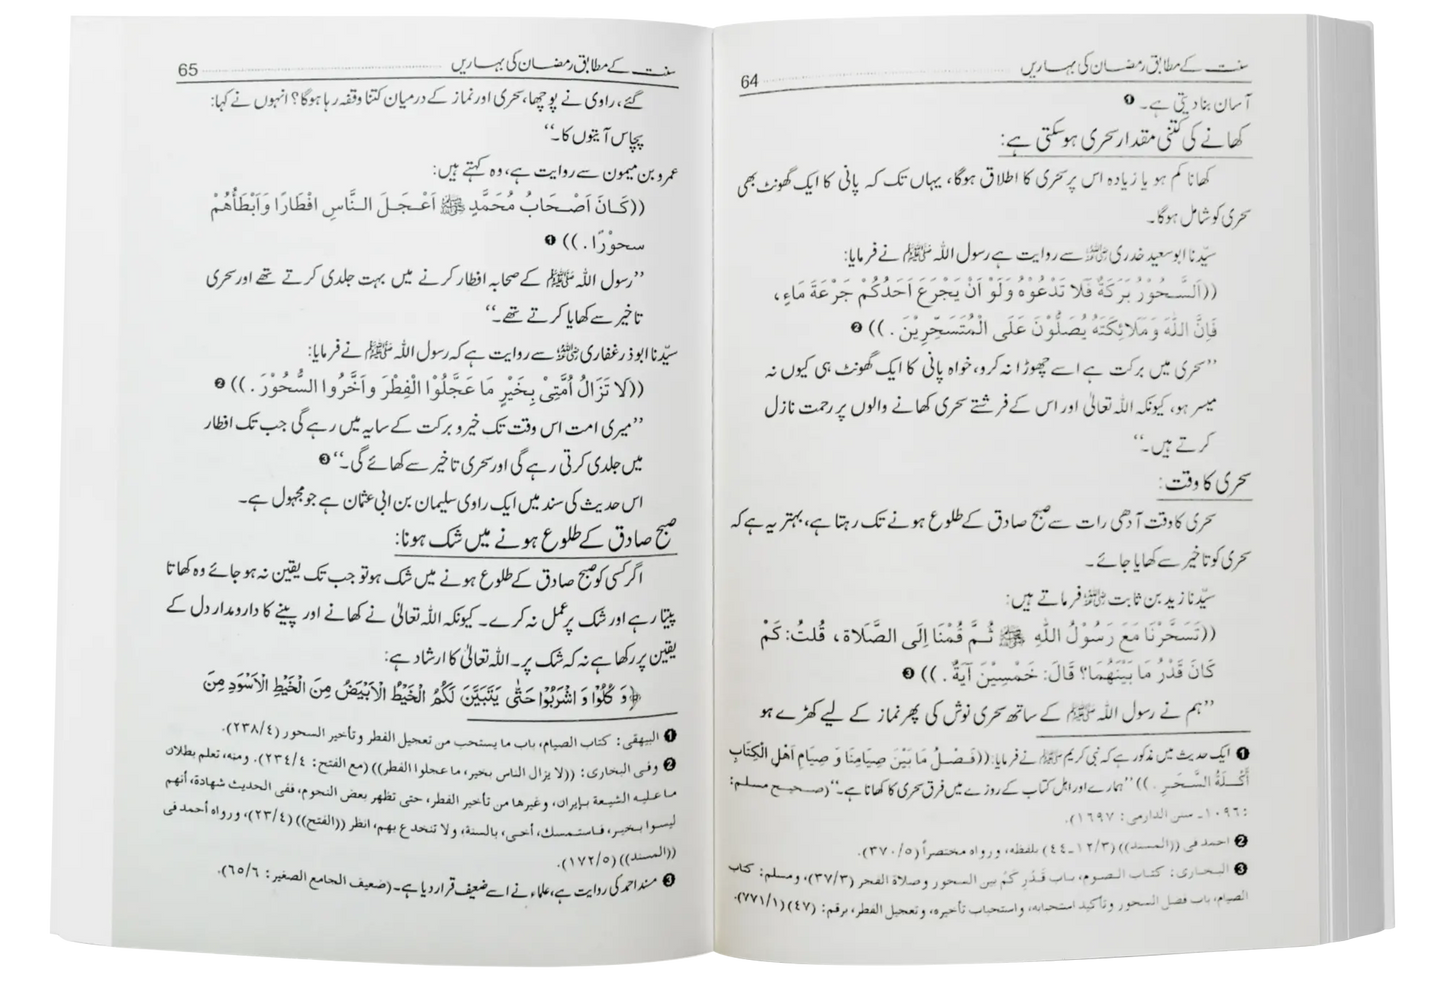 64 سنت کے مطابق رمضان کی بہاریں
آسان بنا دیتی ہے۔ ❶
کھانے کی کتنی مقدار سحری ہوسکتی ہے:
کھانا کم ہو یا زیادہ اس پر سحری کا اطلاق ہوگا، یہاں تک کہ پانی کا ایک گھونٹ بھی
سحری کو شامل ہوگا۔
سیّدنا ابوسعید خدری رضی اللہ عنہ سے روایت ہے رسول اللہ ﷺ نے فرمایا:
((اَلسَّحُوْرُ بَرَكَةٌ فَلَا تَدْعُوْهُ وَلَوْ اَنْ يَجْرَعَ اَحَدُكُمْ جَرْعَةَ مَاءٍ،
فَاِنَّ اللهَ وَمَلَائِكَتَهُ يُصَلُّوْنَ عَلَى الْمُتَسَحِّرِيْنَ.)) ❷
’’سحری میں برکت ہے اسے چھوڑا نہ کرو، خواہ پانی کا ایک گھونٹ ہی کیوں نہ
میسر ہو، کیونکہ اللہ تعالیٰ اور اس کے فرشتے سحری کھانے والوں پر رحمت نازل
کرتے ہیں۔‘‘
سحری کا وقت:
سحری کا وقت آدھی رات سے صبح صادق کے طلوع ہونے تک رہتا ہے، بہتر یہ ہے کہ
سحری کو تاخیر سے کھایا جائے۔
سیّدنا زید بن ثابت رضی اللہ عنہ فرماتے ہیں:
((تَسَحَّرْنَا مَعَ رَسُوْلُ اللهِ ﷺ ثُمَّ قُمْنَا اِلَى الصَّلَاة، قُلتُ: كَمْ
كَانَ قَدْرُ مَا بَيْنَهُمَا؟ قَالَ: خَمْسِيْنَ آيَةٌ.)) ❸
’’ہم نے رسول اللہ ﷺ کے ساتھ سحری نوش کی پھر نماز کے لیے کھڑے ہو
❶ ایک حدیث میں مذکور ہے کہ نبی کریم ﷺ نے فرمایا: ((فَصْلُ مَا بَيْنَ صِيَامِنَا وَ صِيَامِ اَهْلِ الْكِتَابِ
أَكْلَةُ السَّحَرِ.)) ’’ہمارے اور اہل کتاب کے روزے میں فرق سحری کا کھانا ہے۔‘‘ (صحیح مسلم:
١٠٩٦۔ سنن الدارمی: ١٦٩٧).
❷ احمد فی ((المسند)) (١٢/٣۔٤٤) بلفظه، ورواه مختصراً (٣٧٠/٥).
❸ البخاری: کتاب الصوم، باب قَدْرِ كَمْ بین السحور وصلاة الفجر (٣٧/٣)، ومسلم: كتاب
الصيام، باب فضل السحور وتأكيد استحبابه، واستحباب تأخيره، وتعجيل الفطر، برقم: (٤٧) (٧٧١/١).
65 سنت کے مطابق رمضان کی بہاریں
گئے، راوی نے پوچھا، سحری اور نماز کے درمیان کتنا وقفہ رہا ہوگا؟ انہوں نے کہا:
پچاس آیتوں کا۔‘‘
عمرو بن میمون سے روایت ہے، وہ کہتے ہیں:
((كَانَ اَصْحَابُ مُحَمَّدٍ ﷺ اَعْجَلَ النَّاسِ اِفْطَارًا وَاَبْطَأُهُمْ
سحوْرًا.)) ❶
’’رسول اللہ ﷺ کے صحابہ افطار کرنے میں بہت جلدی کرتے تھے اور سحری
تاخیر سے کھایا کرتے تھے۔‘‘
سیّدنا ابوذر غفاری رضی اللہ عنہ سے روایت ہے کہ رسول اللہ ﷺ نے فرمایا:
((لَا تَزَالُ اُمَّتِىْ بِخَيْرٍ مَا عَجَّلُوْا الْفِطْرَ وَاَخَّرُوا السُّحُوْرَ.)) ❷
’’میری امت اس وقت تک خیر و برکت کے سایہ میں رہے گی جب تک افطار
میں جلدی کرتی رہے گی اور سحری تاخیر سے کھائے گی۔‘‘ ❸
اس حدیث کی سند میں ایک راوی سلیمان بن ابی عثمان ہے جو مجہول ہے۔
صبح صادق کے طلوع ہونے میں شک ہونا:
اگر کسی کو صبح صادق کے طلوع ہونے میں شک ہو تو جب تک یقین نہ ہو جائے وہ کھاتا
پیتا رہے اور شک پر عمل نہ کرے۔ کیونکہ اللہ تعالیٰ نے کھانے اور پینے کا دارومدار دل کے
یقین پر رکھا ہے نہ کہ شک پر۔ اللہ تعالیٰ کا ارشاد ہے:
﴿وَ كُلُوْا وَ اشْرَبُوْا حَتّٰى يَتَبَيَّنَ لَكُمُ الْخَيْطُ الْاَبْيَضُ مِنَ الْخَيْطِ الْاَسْوَدِ مِنَ
❶ البيهقی: كتاب الصيام، باب ما يستحب من تعجيل الفطر وتأخير السحور (٢٣٨/٤).
❷ وفی البخاری: ((لا يزال الناس بخير، ما عجلوا الفطر)) (مع الفتح: ٢٣٤/٤). ومنه، تعلم بطلان
ما عليه الشيعة بإيران، وغيرها من تأخير الفطر، حتى تظهر بعض النجوم، ففى الحديث شهادة، أنهم
ليسوا بخير، فاستمسك، أخى، بالسنة، ولا تنخدع بهم، انظر ((الفتح)) (٢٣/٤)، ورواه أحمد فى
((المسند)) (١٧٢/٥).
❸ مسند احمد کی روایت ہے، علماء نے اسے ضعیف قرار دیا ہے۔ (ضعيف الجامع الصغير: ٦٥/٦).